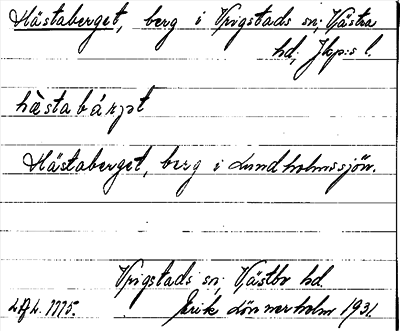 Hästaberget, berg i Vrigstads sn; Västra
hd, Jkp:s l.
hästabárjət
Hästaberget, berg i Lundholmssjön.
Vrigstads sn; Västbo hd
Erik Lönnerholm 1931